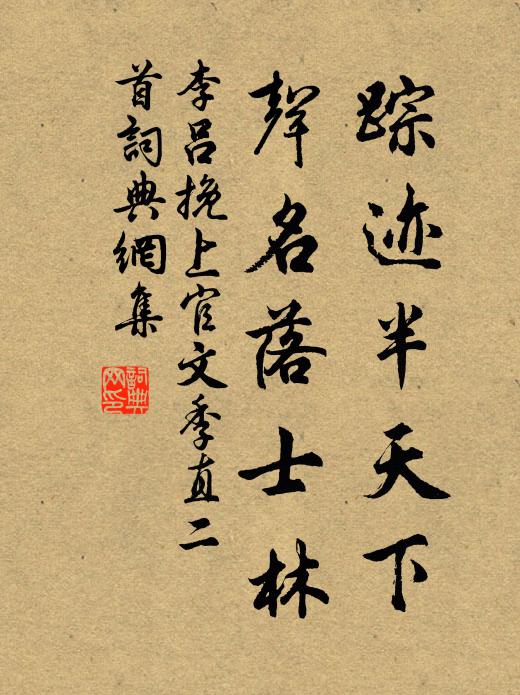 踪迹半天下
聲名落士林
李吕挽上官文季直二
首詞典網集
詞典
网印